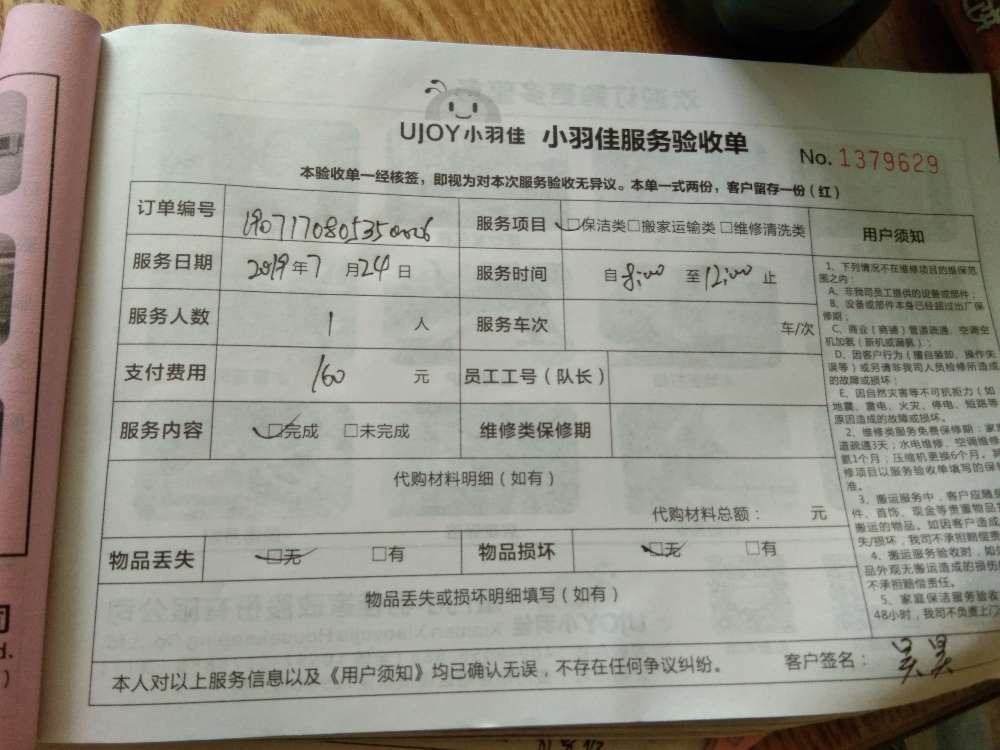 UJOY小羽佳 小羽佳服务验收单 No. 1379629
本验收单一经核签，即视为对本次服务验收无异议。本单一式两份，客户留存一份（红）
订单编号 服务项目 □保洁类□搬家运输类 □维修清洗类 用户须知
服务日期 2019年7月24日 服务时间 自 8:00 至 12:00 止
服务人数 1 人 服务车次 车/次
支付费用 160 元 员工工号（队长）
服务内容 □完成 □未完成 维修类保修期
代购材料明细（如有）
代购材料总额： 元
物品丢失 □无 □有 物品损坏 □无 □有
物品丢失或损坏明细填写（如有）
本人对以上服务信息以及《用户须知》均已确认无误，不存在任何争议纠纷。 客户签名：
1、下列情况不在维修项目的维保范
围之内：
A、非我司员工提供的设备或部件；
B、设备或部件本身已经超过出厂保
修期；
C、商业（商铺）管道疏通、空调空
机加氨（新机或漏氨）；
D、因客户行为（擅自装卸、操作失
误等）或另请非我司人员检修所造成
的故障或损坏；
E、因自然灾害等不可抗拒力（如
地震、雷电、火灾、停电、短路等
原因造成的故障或损坏。
2、维修类服务免费保修期：家
道疏通3天；水电维修、空调维修
氨1个月；压缩机更换6个月。其
修项目以服务验收单填写的保
准。
3、搬运服务中，客户应随身
件、首饰、现金等贵重物品
搬运的物品。如因客户造成
失/损坏，我司不承担赔偿责
4、搬运服务验收时，如
品外观无搬运造成的损伤
不承担赔偿责任。
5、家庭保洁服务验收
48小时，我司不负责上门